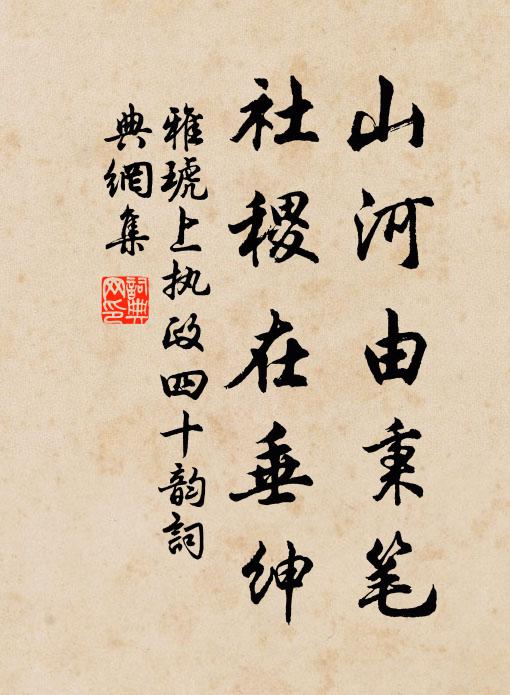 山河由秉笔
社稷在垂绅
雅琥上执政四十韵词
典網集
詞典
网印